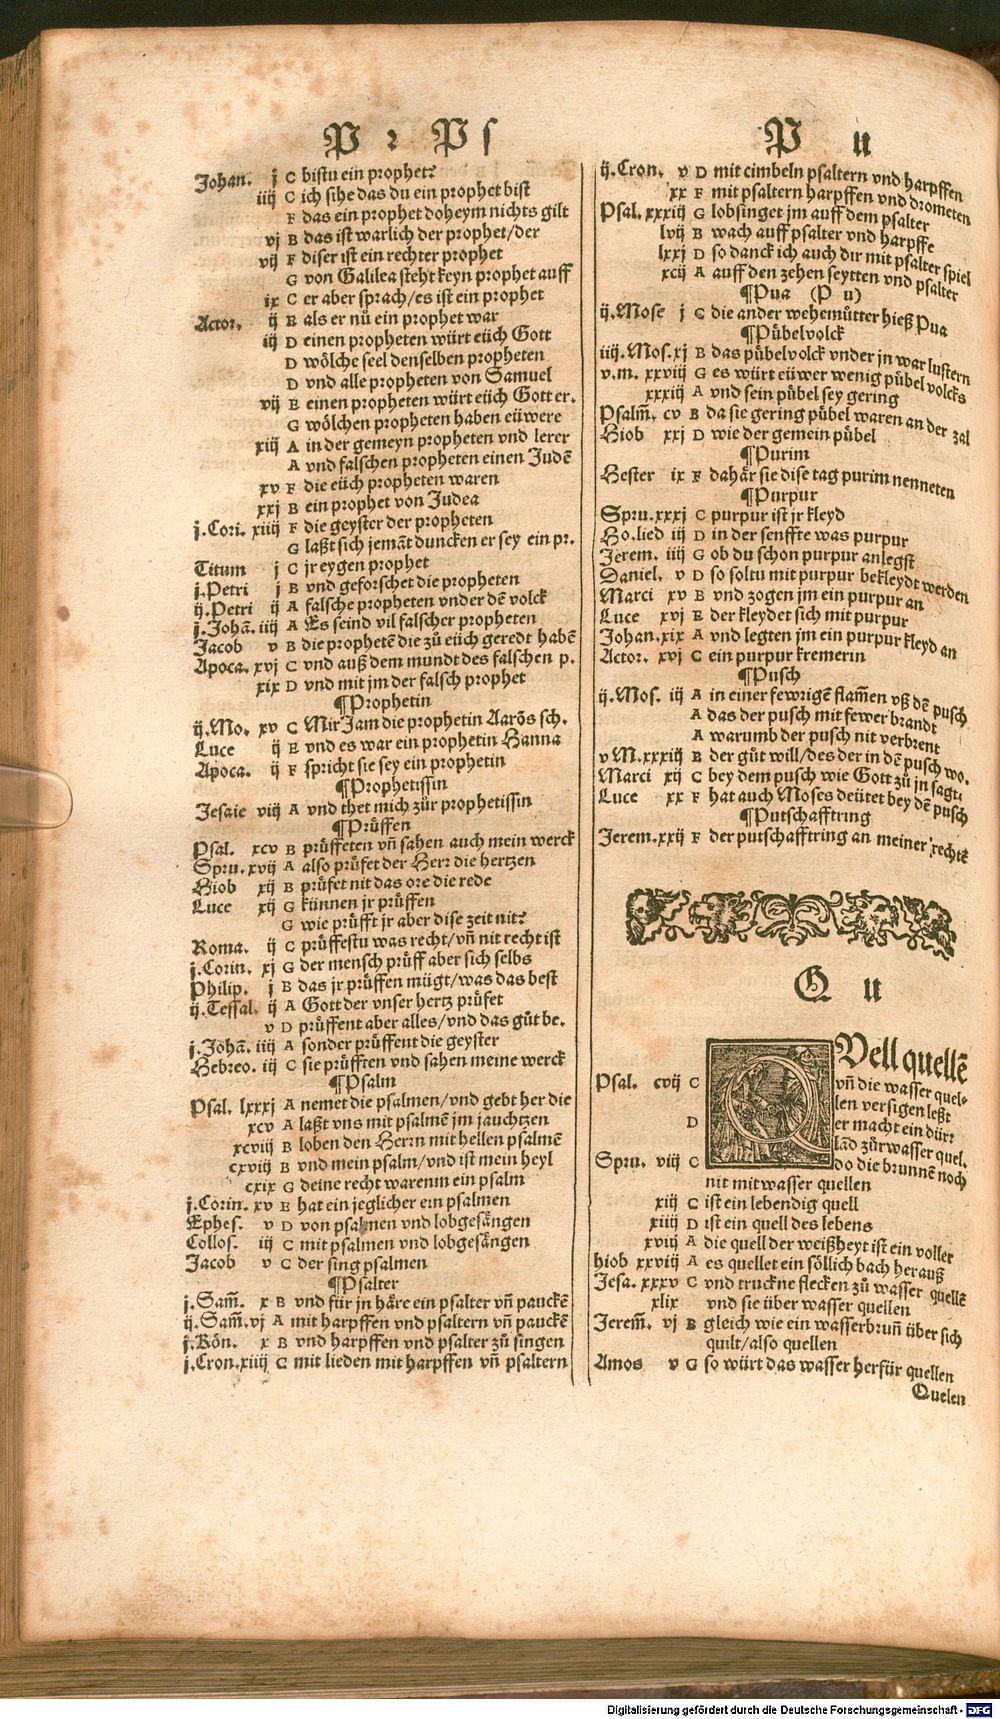 P r P s
Johan. j C bistu ein prophet?
iiij C ich sihe das du ein prophet bist
F das ein prophet doheym nichts gilt
vj B das ist warlich der prophet/der
vij F diser ist ein rechter prophet
G von Galilea steht keyn prophet auff
ix C er aber sprach/es ist ein prophet
Actor. ij E als er nũ ein prophet war
iij D einen propheten würt eüch Gott
D wölche seel denselben propheten
D vnd alle propheten von Samuel
vij E einen propheten würt eüch Gott er.
G wölchen propheten haben eüwere
xiij A in der gemeyn propheten vnd lerer
A vnd falschen propheten einen Judẽ
xv F die eüch propheten waren
xxj B ein prophet von Judea
j.Cori. xiiij F die geyster der propheten
G laßt sich jemãt duncken er sey ein pr.
Titum j C jr eygen prophet
j.Petri j B vnd geforschet die propheten
ij.Petri ij A falsche propheten vnder dẽ volck
j.Johã. iiij A Es seind vil falscher propheten
Jacob v B die prophetẽ die zů eüch geredt habẽ
Apoca. xvj C vnd auß dem mundt des falschen p.
xix D vnd mit jm der falsch prophet
¶Prophetin
ij.Mo. xv C MirJam die prophetin Aarõs sch.
Luce ij E vnd es war ein prophetin Hanna
Apoca. ij F spricht sie sey ein prophetin
¶Prophetissin
Jesaie viij A vnd thet mich zůr prophetissin
¶Prüffen
Psal. xcv B prüffeten vñ sahen auch mein werck
Spru. xvij A also prüfet der Herr die hertzen
Hiob xij B prüfet nit das ore die rede
Luce xij G künnen jr prüffen
G wie prüfft jr aber dise zeit nit?
Roma. ij C prüffestu was recht/vñ nit recht ist
j.Corin. xj G der mensch prüff aber sich selbs
Philip. j B das jr prüffen mügt/was das best
ij.Tessal. ij A Gott der vnser hertz prüfet
v D prüffent aber alles/vnd das gůt be.
j.Johã. iiij A sonder prüffent die geyster
Hebreo. iij C sie prüfften vnd sahen meine werck
¶Psalm
Psal. lxxxj A nemet die psalmen/vnd gebt her die
xcv A laßt vns mit psalmẽ jm jauchtzen
xcviij B loben den Herrn mit hellen psalmẽ
cxviij B vnd mein psalm/vnd ist mein heyl
cxix G deine recht warenm ein psalm
j.Corin. xv E hat ein jeglicher ein psalmen
Ephes. v D von psalmen vnd lobgesängen
Collos. iij C mit psalmen vnd lobgesängen
Jacob v C der sing psalmen
¶Psalter
j.Sam̃. x B vnd für jn häre ein psalter vñ pauckẽ
ij.Sam̃. vj A mit harpffen vnd psaltern vñ pauckẽ
j.Kön. x B vnd harpffen vnd psalter zů singen
j.Cron. xiiij C mit lieden mit harpffen vñ psaltern
P u
ij.Cron. v D mit cimbeln psaltern vnd harpffen
xx F mit psaltern harpffen vnd drometen
Psal. xxxiij G lobsinget jm auff dem psalter
lvij B wach auff psalter vnd harpffe
lxxj D so danck ich auch dir mit psalter spiel
xcij A auff den zehen seytten vnd psalter
¶Pua (P u)
ij.Mose j C die ander wehemütter hieß Pua
¶Pübelvolck
iiij.Mos. xj B das pübelvolck vnder jn war lustern
v.m. xxviij G es würt eüwer wenig pübel volcks
xxxiij A vnd sein pübel sey gering
Psalm̃. cv B da sie gering pübel waren an der zal
Hiob xxj D wie der gemein pübel
¶Purim
Hester ix F dahär sie dise tag purim nenneten
¶Purpur
Spru. xxxj C purpur ist jr kleyd
Ho.lied iij D in der senffte was purpur
Jerem. iiij G ob du schon purpur anlegst
Daniel. v D so soltu mit purpur bekleydt werden
Marci xv B vnd zogen jm ein purpur an
Luce xvj E der kleydet sich mit purpur
Johan. xix A vnd legten jm ein purpur kleyd an
Actor. xvj C ein purpur kremerin
¶Pusch
ij.Mos. iij A in einer fewrigẽ flam̃en vß dẽ pusch
A das der pusch mit fewer brandt
A warumb der pusch nit verbrent
v M. xxxiij B der gůt will/des der in dẽ pusch wo.
Marci xij C bey dem pusch wie Gott zů jn sagt.
Luce xx F hat auch Moses deütet bey dẽ pusch
¶Putschafftring
Jerem. xxij F der putschafftring an meiner rechtẽ
Q u
QVell quellẽ
Psal. cvij C vñ die wasser quel-
len versigen leßt
D er macht ein dür:
lãd zůr wasser quel.
Spru. viij C do die brunnẽ noch
nit mit wasser quellen
xiij C ist ein lebendig quell
xiiij D ist ein quell des lebens
xviij A die quell der weißheyt ist ein voller
hiob xxviij A es quellet ein söllich bach herauß
Jesa. xxxv C vnd truckne flecken zů wasser quellẽ
xlix vnd sie über wasser quellen
Jerem̃. vj B gleich wie ein wasserbruñ über sich
quilt/also quellen
Amos v G so würt das wasser herfür quellen
Quelen
Digitalisierung gefördert durch die Deutsche Forschungsgemeinschaft - DFG